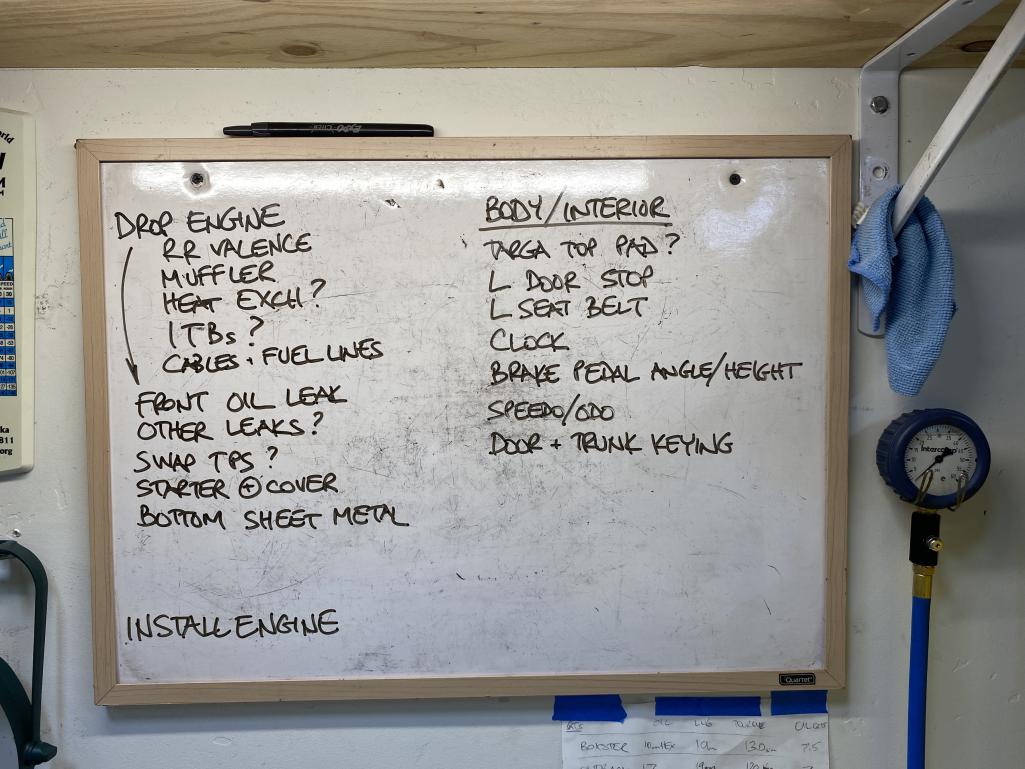 EXPO
DROP ENGINE
RR VALENCE
MUFFLER
HEAT EXCH?
ITBs?
CABLES + FUEL LINES
FRONT OIL LEAK
OTHER LEAKS?
SWAP TPS?
STARTER ⊕ COVER
BOTTOM SHEET METAL
INSTALL ENGINE
BODY/INTERIOR
TARGA TOP PAD?
L DOOR STOP
L SEAT BELT
CLOCK
BRAKE PEDAL ANGLE/HEIGHT
SPEEDO/ODO
DOOR + TRUNK KEYING
Quartet
Intercomp
SPEED
B11
.org
OIL LUG TORQUE
BOXSTER 10mm HEX 19mm 130 7.5